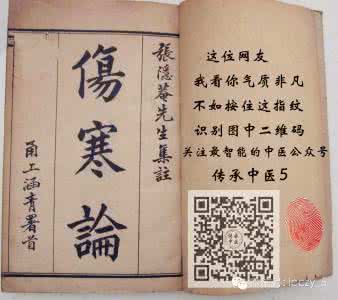 張隱菴先生集註
傷寒論
甬上涵青署首
这位网友
我看你气质非凡
不如按住这指纹
识别图中二维码
关注最智能的中医公众号
传承中医5